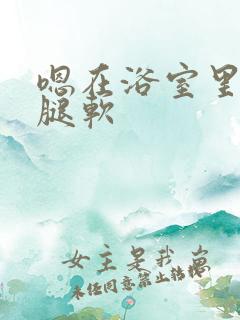 嗯在浴室里
腿软
女主是我
未经同意禁止转载